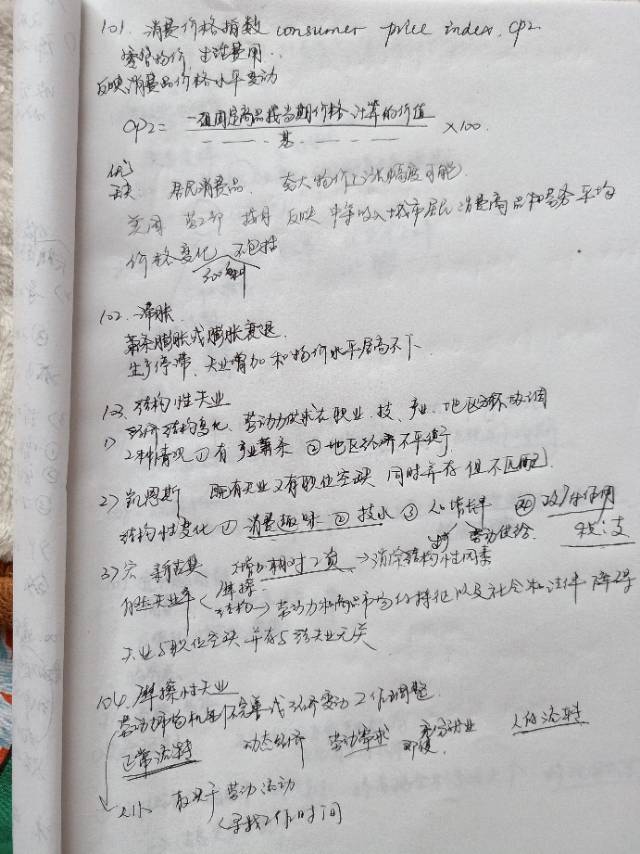 101. 消费价格指数 consumer price index. cpI
零售物价, 生活费用.
反映消费品价格水平变动
cpI= 一组固定商品按当期价格计算的价值 ×100
基
优
缺 居民消费品. 夸大物价上涨幅度可能
美国 劳工部 按月 反映 中等收入城市居民 消费商品和劳务平均
价格变化 不包括
300多种
102. 滞胀
萧条膨胀或膨胀衰退
生产停滞、失业增加和物价水平居高不下
103. 结构性失业
1) 经济结构变化、劳动力供求在职业、技、产业、地区分布协调
2种情况 ① 有产业萧条 ② 地区经济不平衡
2) 凯恩斯 既有失业又有职位空缺 同时并存但不匹配
结构性变化 ① 消费趣味 ② 技术 ③ 人口增长率 ④ 政府作用
劳动供给 税:支
3) 新古典 相对工资 → 消除结构性因素
自然失业率 摩擦
结构 → 劳动力和商品市场的特征以及社会和法律障碍
失业与职位空缺并存与总失业无关
104. 摩擦性失业
劳动市场机制不完善或经济变动工作调整
正常流转 动态经济 劳动需求 充分就业 人的流转
即使
大小 取决于 劳动流动
寻找工作时间